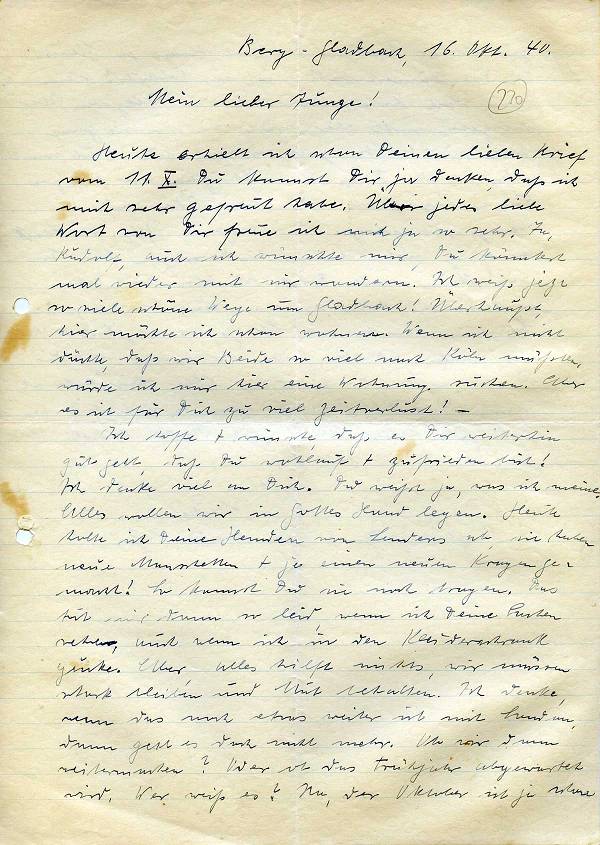 Berg-Gladbach, 16. Okt. 40.
220
Mein lieber Junge!
Heute erhielt ich schon Deinen lieben Brief
vom 11. X. Du kannst Dir ja denken, daß ich
mich sehr gefreut habe. Über jedes liebe
Wort von Dir freue ich mich ja so sehr. Ja,
Rudolf, auch ich wünschte mir, Du könntest
mal wieder mit mir wandern. Ich weiß jetzt
so viele schöne Wege um Gladbach! Überhaupt,
hier möchte ich schon wohnen. Wenn ich nicht
dächte, daß wir Beide so viel nach Köln müßten,
würde ich mir hier eine Wohnung suchen. Aber
es ist für Dich zu viel Zeitverlust! –
Ich hoffe + wünsche, daß es Dir weiterhin
gut geht, daß Du wohlauf + zufrieden bist!
Ich denke viel an Dich. Du weißt ja, was ich meine.
Alles wollen wir in Gottes Hand legen. Heute
holte ich Deine Hemden von ab, sie haben
neue Manschetten + je einen neuen Kragen ge-
macht! So kannst Du sie noch tragen. Das
tut mir dann so leid, wenn ich Deine Sachen
sehe, auch wenn ich in den Kleiderschrank
gucke. Aber alles hilft nichts, wir müssen
stark bleiben und Mut behalten. Ich denke,
wenn das noch etwas weiter ist mit London,
dann geht es doch nicht mehr. Ob wir dann
weitermachen? Oder ob das Frühjahr abgewartet
wird. Wer weiß es? Na, der Oktober ist ja schon